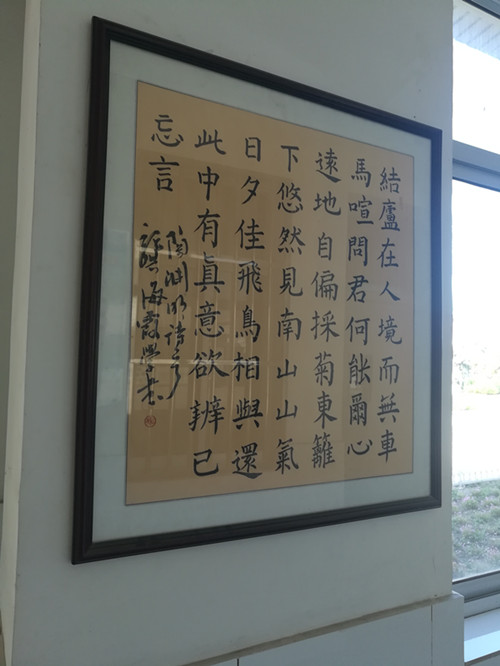 結廬在人境而無車
馬喧問君何能爾心
遠地自偏採菊東籬
下悠然見南山山氣
日夕佳飛鳥相與還
此中有眞意欲辨已
忘言
陶淵明詩
海霞學書